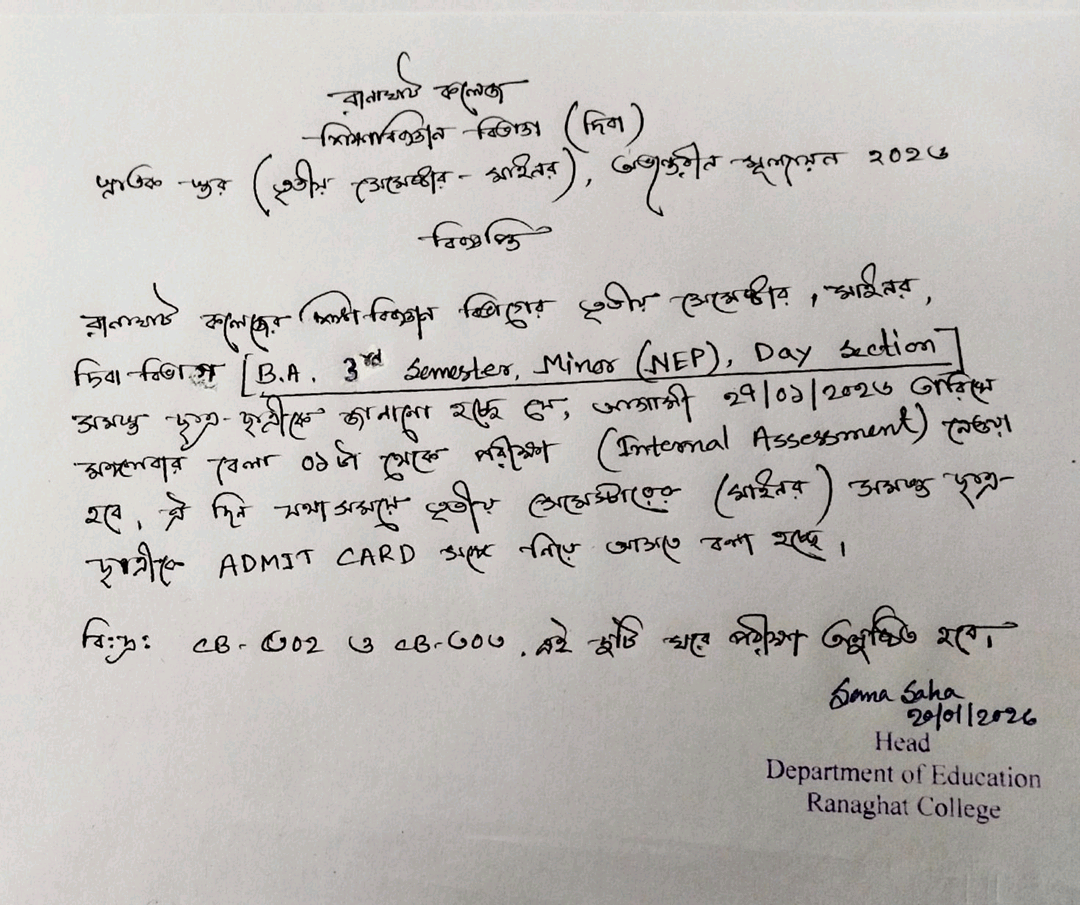 রানাঘাট কলেজ
শিক্ষাবিজ্ঞান বিভাগ (দিবা)
স্নাতক স্তর (তৃতীয় সেমেস্টার - মাইনর), অভ্যন্তরীন মূল্যায়ন ২০২৬
বিজ্ঞপ্তি
রানাঘাট কলেজের শিক্ষাবিজ্ঞান বিভাগের তৃতীয় সেমেস্টার, মাইনর,
দিবা বিভাগ [B.A. 3rd Semester, Minor (NEP), Day Section]
সমস্ত ছাত্র-ছাত্রীকে জানানো হচ্ছে যে, আগামী ২৭/০১/২০২৬ তারিখে
মঙ্গলবার বেলা ০১টা থেকে পরীক্ষা (Internal Assessment) নেওয়া
হবে, ঐ দিন যথা সময়ে তৃতীয় সেমেস্টারের (মাইনর) সমস্ত ছাত্র-
ছাত্রীকে ADMIT CARD সঙ্গে নিয়ে আসতে বলা হচ্ছে।
বি:দ্র: CB-৩০২ ও CB-৩০৩, এই দুটি ঘরে পরীক্ষা অনুষ্ঠিত হবে।
Soma Saha
20/01/2026
Head
Department of Education
Ranaghat College